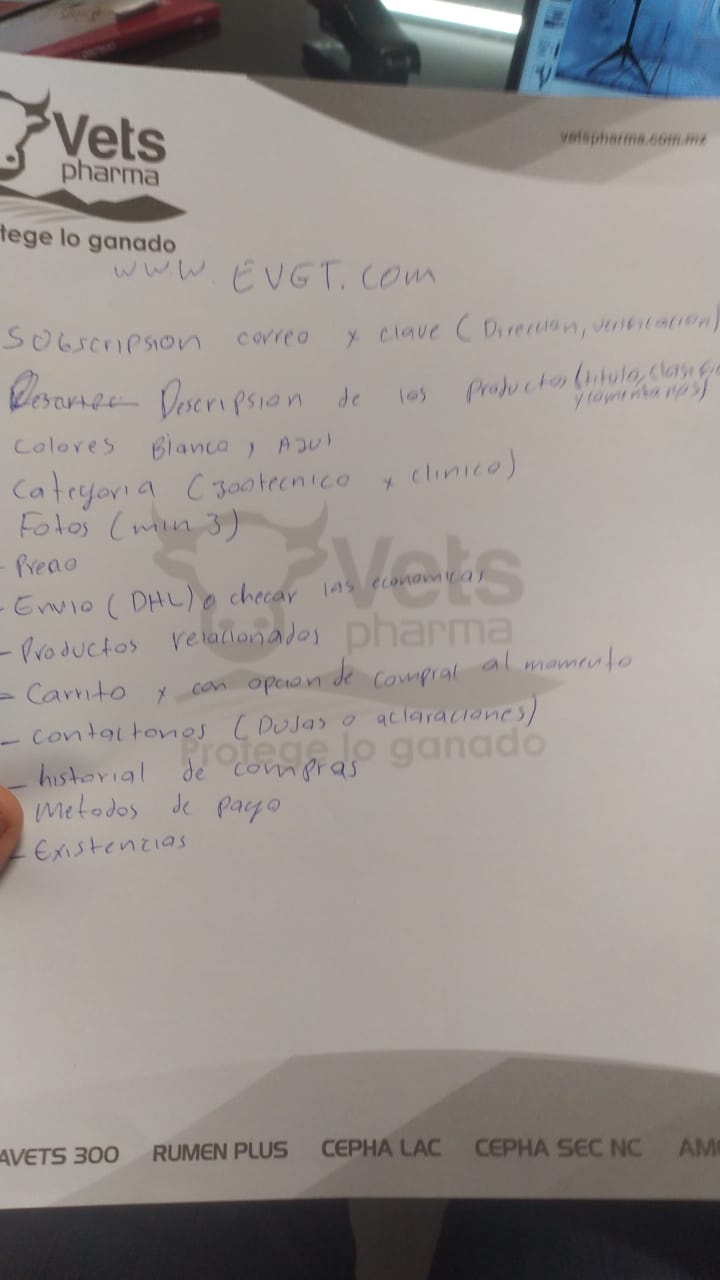 Vets
pharma
tege lo ganado
vetspharma.com.mx
WWW. EVGT. COM
SOBscripsion correo y clave (Direccion, verificacion)
Descripsion de los Productos (titulo, clasific
y comentarios)
colores Blanco, Azul
categoria (zootecnico y clinico)
Fotos (min 3)
- Precio
- Envio (DHL) o checar las economicas
- Productos relacionados
- Carrito y con opcion de compral al momento
- contactonos (Dudas o aclaraciones)
- historial de compras
Metodos de pago
- Existencias
Vets
pharma
Protege lo ganado
AVETS 300 RUMEN PLUS CEPHA LAC CEPHA SEC NC AM